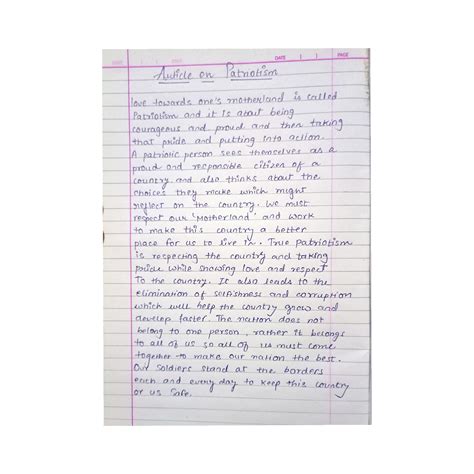 DATE PAGE
Article on Patriotism
love towards one's motherland is called
Patriotism and it is about being
courageous and proud and then taking
that pride and putting into action.
A patriotic person sees themselves as a
proud and responsible citizen of a
country and also thinks about the
choices they make which might
reflect on the country. We must
respect our 'Motherland' and work
to make this country a better
place for us to live in. True patriotism
is respecting the country and taking
pride while showing love and respect
To the country. It also leads to the
elimination of selfishness and corruption
which will help the country grow and
develop faster. The nation does not
belong to one person, rather it belongs
to all of us so all of us must come
together to make our nation the best.
Our soldiers stand at the borders
each and every day to keep this country
or us safe.